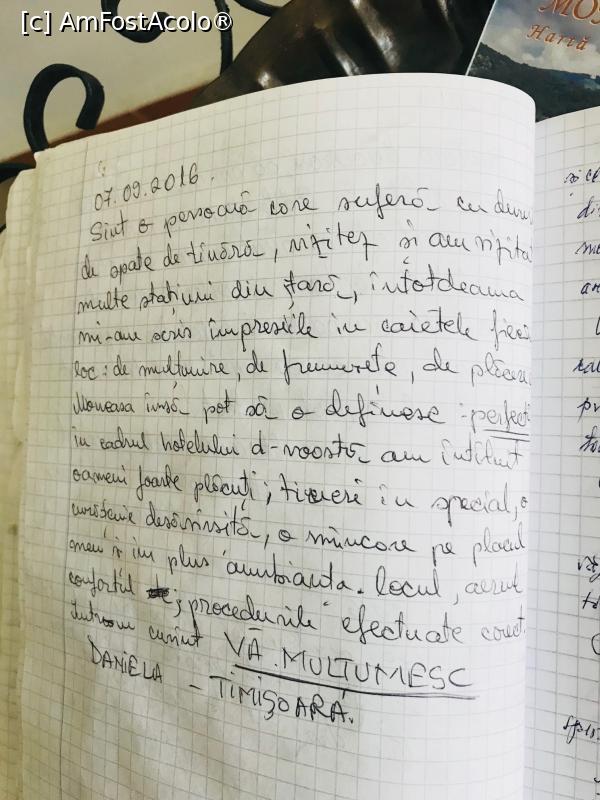 [c] AmFostAcolo®
MO
Hartă
07.09.2016.
Sint o persoană care suferă cu dure
de spate de tînără, vizitez și am vizita
multe stațiuni din țară, întotdeauna
mi-am scris impresiile in caietele fiecă
loc: de multumire, de frumusețe, de plăcere
Moneasa însă pot să o definesc: perfect
în cadrul hotelului d-voastră am întîlnit
oameni foarte plăcuți; tineri în special, o
curățenie desăvîrsită, o mîncare pe placul
meu și in plus ambianta. locul, aerul
confortul ; procedurile efectuate corect.
Intr-un cuvint VĂ MULTUMESC
DANIELA - TIMIȘOARA.